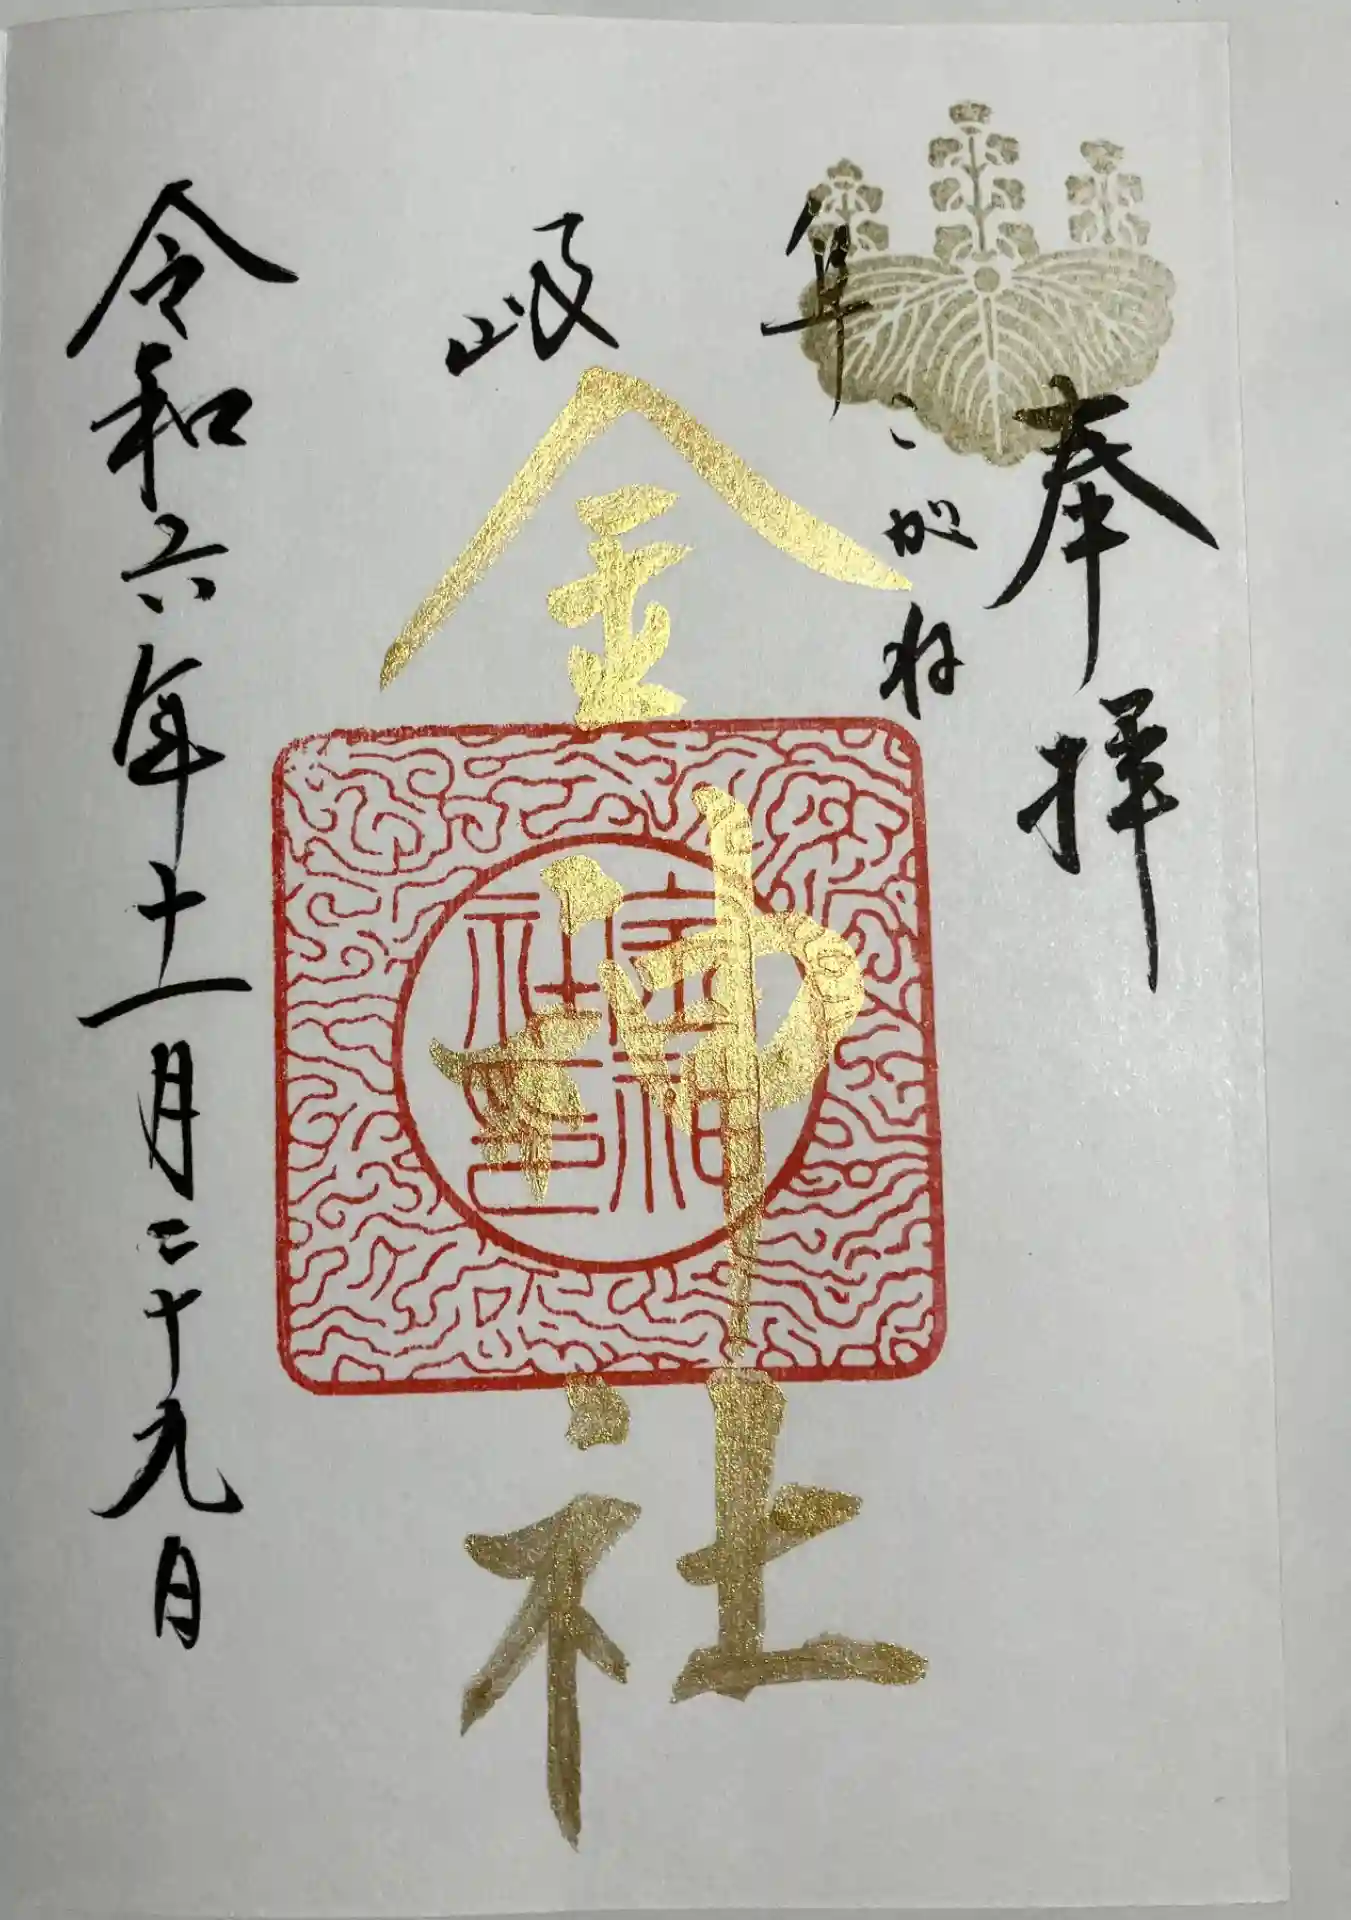 奉拝
こがね
岐阜
金神社
令和六年十一月二十九日